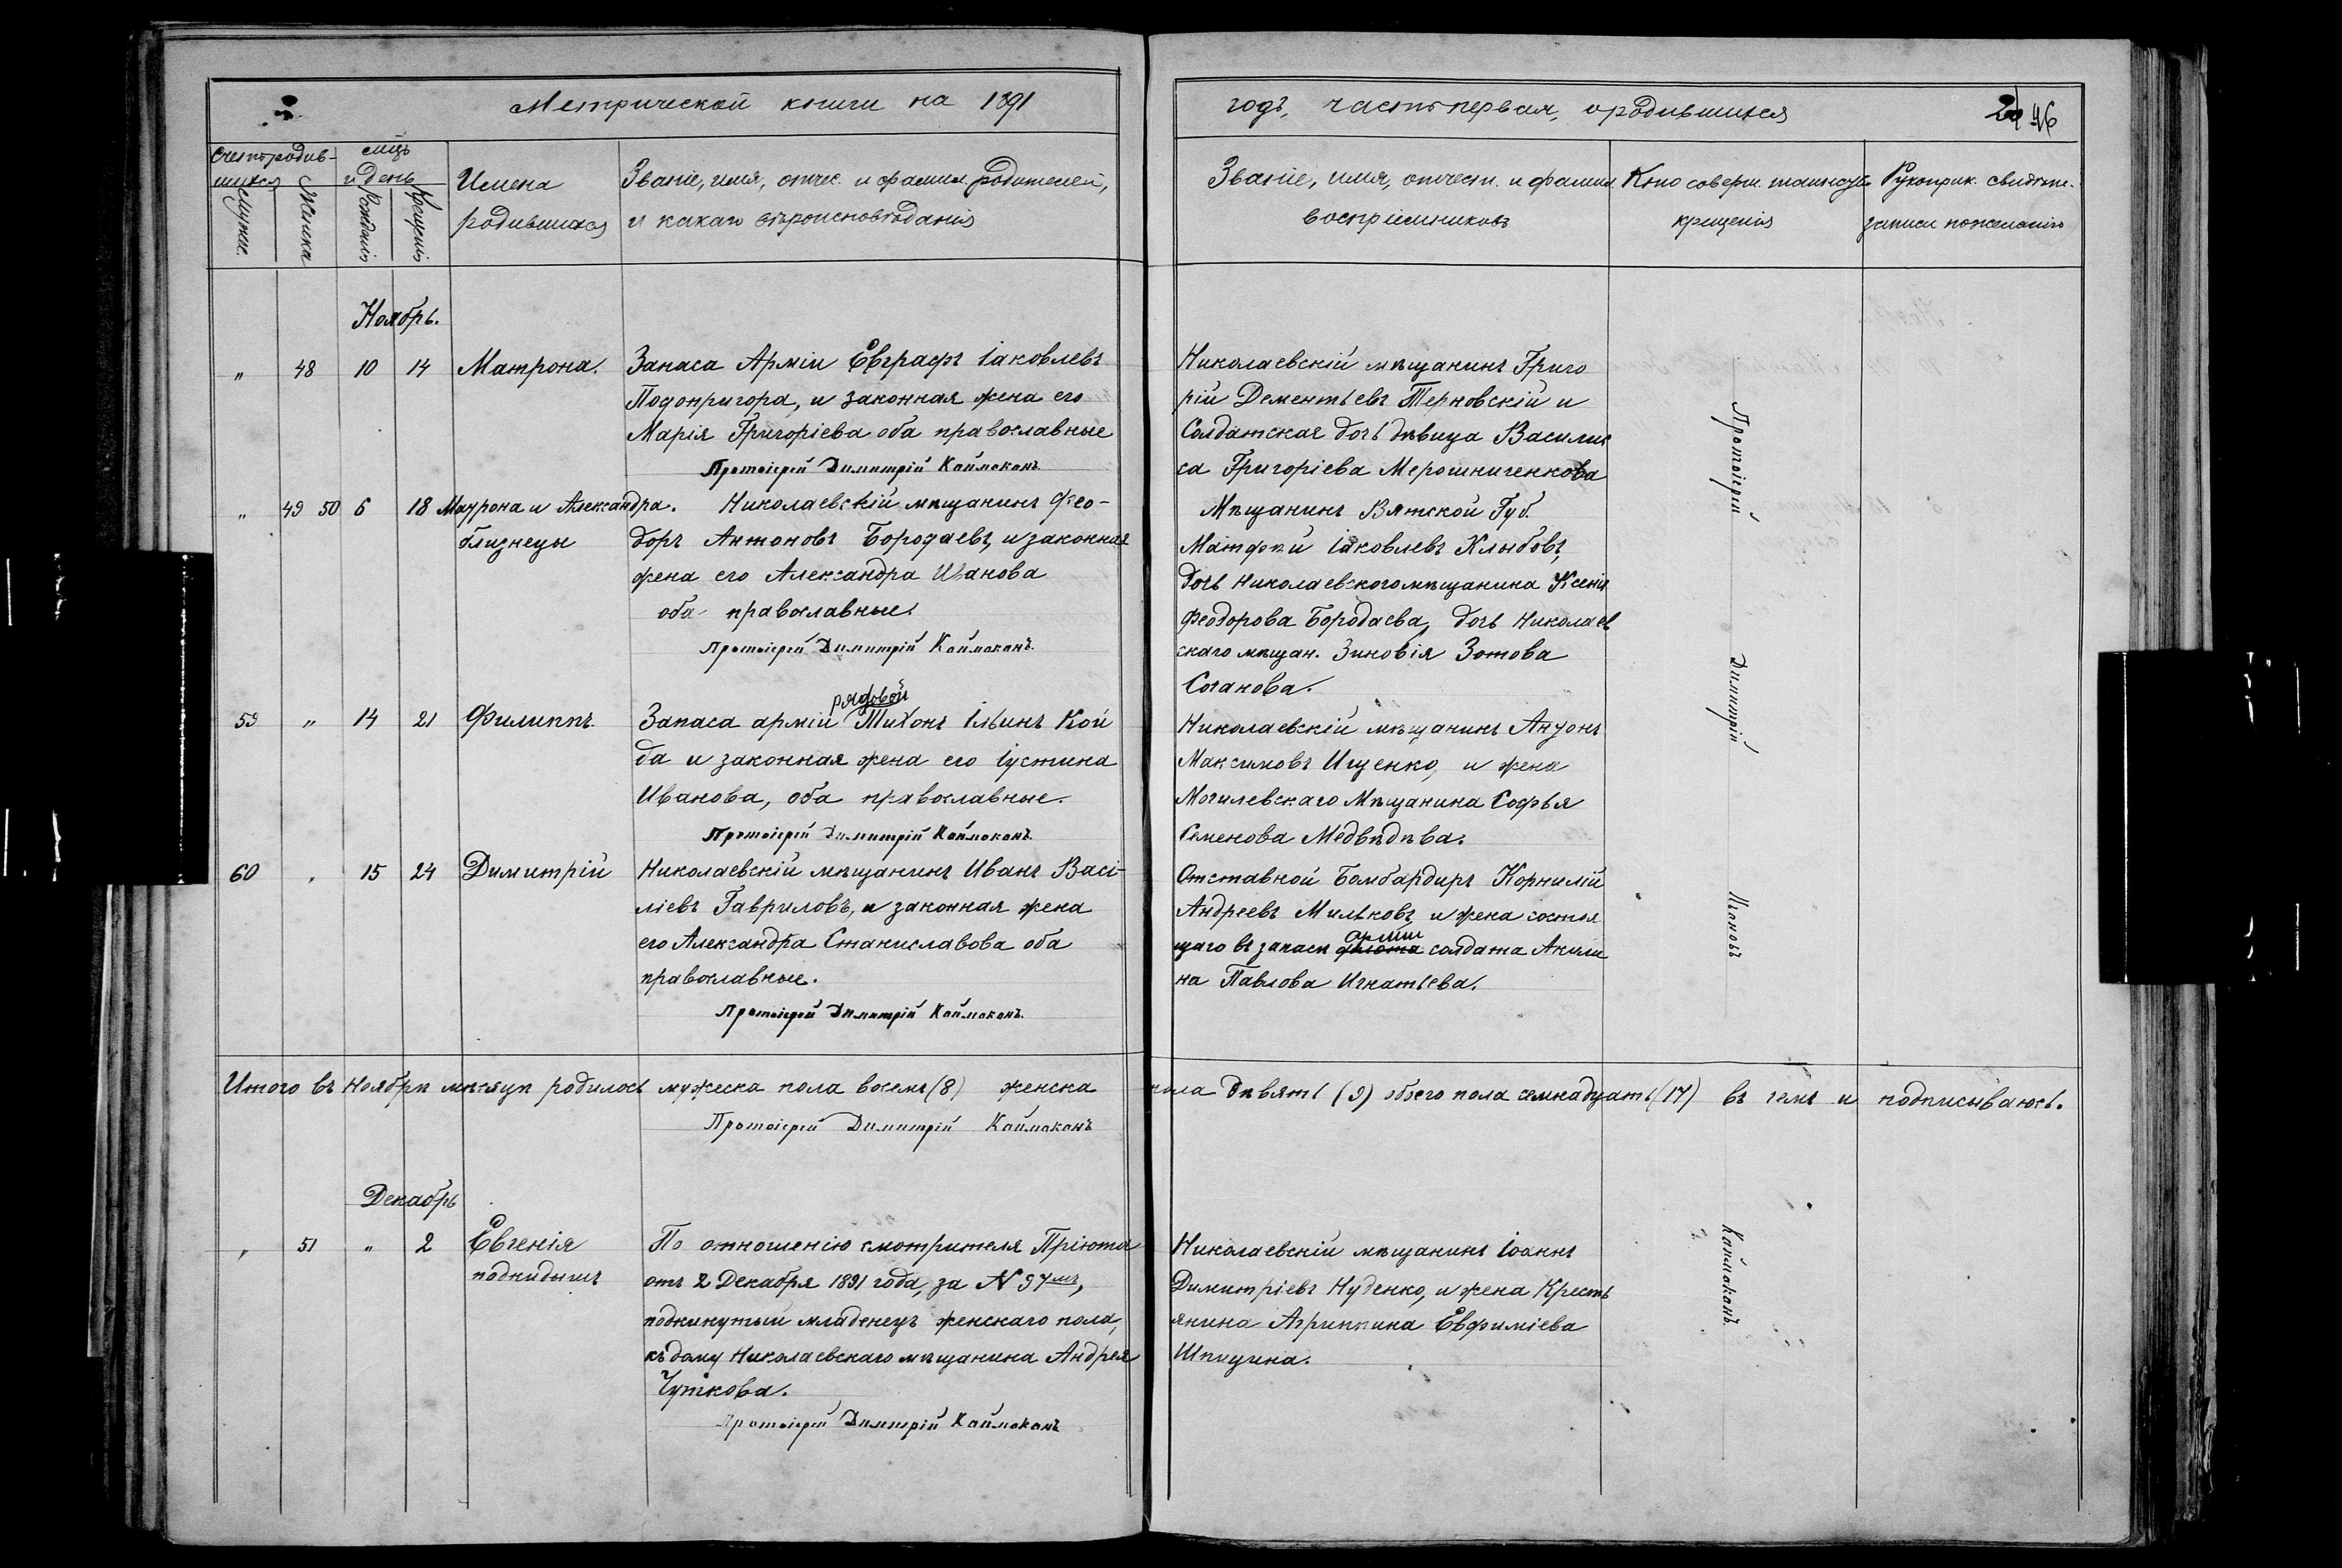 Метрической книги на 1891
Счетъ родив-
шихся
Мужес.
Женска
мцъ
и день
Рожденія
Крещенія
Имена
родившихся
Званіе, имя, отчес. и фамил. родителей,
и какаго вѣроисповѣданія
Ноябрь.
„ 48 10 14 Матрона.
Запаса Арміи Евграфъ Іаковлевъ
Подопригора, и законная жена его
Марія Григоріева оба православные
Протоіерей Димитрій Каймаканъ
„ 49 50 6 18 Матрона и Александра.
близнецы
Николаевскій мѣщанинъ Фео-
доръ Антоновъ Бородаевъ, и законная
жена его Александра Иванова
оба православные.
Протоіерей Димитрій Каймаканъ.
59 „ 14 21 Филиппъ.
рядовой
Запаса арміи Тихонъ Ильинъ Кой
да и законная жена его Іустина
Иванова, оба православные.
Протоіерей Димитрій Каймаканъ.
60 „ 15 24 Димитрій
Николаевскій мѣщанинъ Иванъ Васі-
ліевъ Гавриловъ, и законная жена
его Александра Станиславова оба
православные.
Протоіерей Димитрій Каймаканъ.
Итого въ Ноябрѣ мѣсяцѣ родилось мужеска пола восемь (8) женска
Протоіерей Димитрій Каймаканъ
Декабрь
„ 51 „ 2 Евгенія
подкидышъ
По отношенію смотрителя Пріюта
отъ 2 Декабря 1891 года, за N 97мъ,
подкинутый младенецъ женскаго пола,
къ дому Николаевскаго мѣщанина Андрея
Чуткова.
Протоіерей Димитрій Каймаканъ
годъ, часть первая, о родившихся
46
Званіе, имя, отчест. и фамил.
воспріемниковъ
Кто соверш. таинство
крещенія
Рукоприк. свидѣте.
записи по желанію
Николаевскій мѣщанинъ Григо
рій Дементьевъ Терновскій и
Солдатская дочь дѣвица Василис
са Григоріева Мерошниченкова
Мѣщанинъ Вятской Губ.
Матфѣй Іаковлевъ Клыбовъ,
дочь Николаевского мѣщанина Ксенія
Феодорова Бородаева, дочь Николаев
скаго мѣщан. Зиновія Зотова
Соганова.
Николаевскій мѣщанинъ Антонъ
Максимовъ Ищенко, и жена
Могилевскаго Мѣщанина Софья
Семенова Медвѣдѣва.
Отставной Бомбардиръ Корнилій
Андреевъ Мильковъ, и жена состоя
арміи
щаго въ запасѣ флота солдата Акили
на Павлова Игнатьева.
пола дѣвять (9) обоего пола семнадцать (17) въ чемъ и подписываюсь.
Николаевскій мѣщанинъ Іоаннъ
Димитріевъ Нуденко, и жена Кресть
янина Агриппина Евфиміева
Шпицина.
Протоіерей
Димитрій
Ивановъ
Каймаканъ.